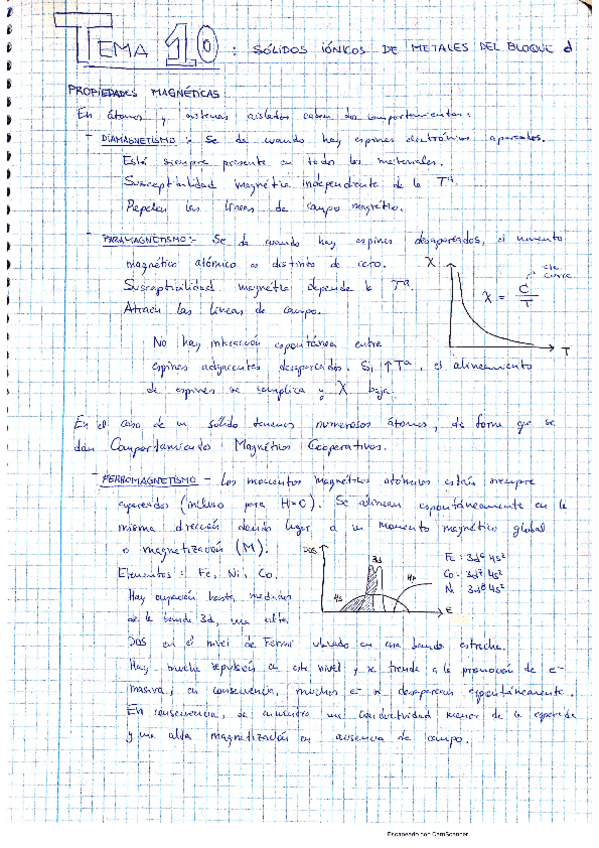 TEMA 10: SÓLIDOS IÓNICOS DE METALES DEL BLOQUE d
PROPIEDADES MAGNÉTICAS
En átomos y sistemas aislados caben dos comportamientos:
- DIAMAGNETISMO:- Se da cuando hay espines electrónicos apareados.
Está siempre presente en todos los materiales.
Susceptibilidad magnética independiente de la Tª.
Repelen las líneas de campo magnético.
- PARAMAGNETISMO:- Se da cuando hay espines desapareados, el momento
magnético atómico es distinto de cero.
Susceptibilidad magnética depende la Tª.
Atraen las líneas de campo.
χ
cte
Curie
χ = C/T
T
No hay interacción espontánea entre
espines adyacentes desapareados. Si ↑Tª, el alineamiento
de espines se complica y χ baja.
En el caso de un sólido tenemos numerosos átomos, de forma que se
dan Comportamientos Magnéticos Cooperativos.
- FERROMAGNETISMO - Los momentos magnéticos atómicos están siempre
(incluso para H=0). Se alinean espontáneamente en la
misma dirección dando lugar a un momento magnético global
o magnetización (M).
DOS
3d
4s
4p
E
Fe: 3d⁶ 4s²
Co: 3d⁷ 4s²
Ni 3d⁸ 4s²
Elementos: Fe, Ni, Co.
Hay ocupación hasta mediados
de la banda 3d, una alta
DOS en el nivel de Fermi ubicado en una banda estrecha.
Hay mucha repulsión en este nivel y se tiende a la promoción de e-
masiva, en consecuencia, muchos e- se desaparean espontáneamente.
En consecuencia, se encuentra una conductividad menor de la esperada
y una alta magnetización en ausencia de campo.
Escaneado con CamScanner